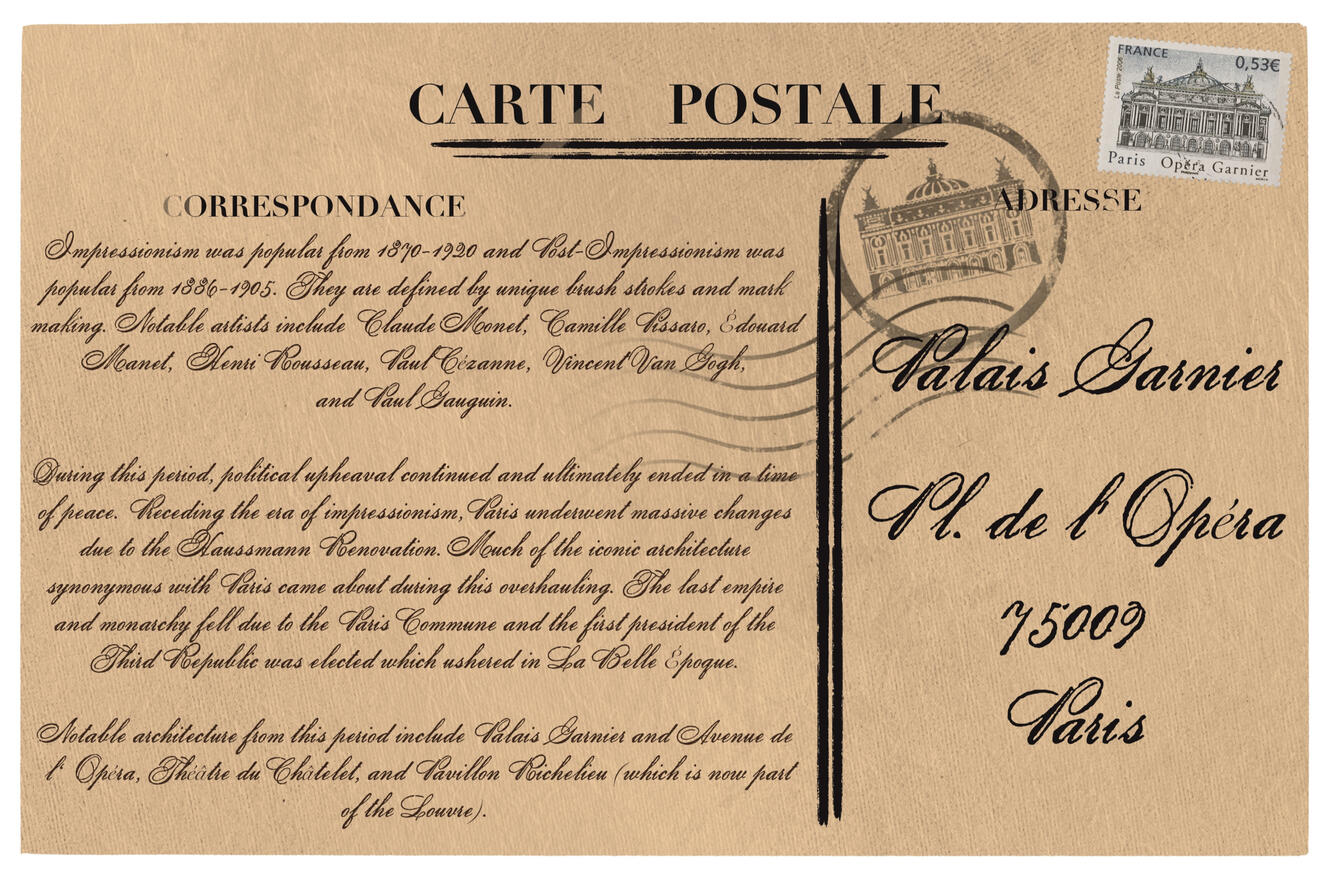 CARTE POSTALE
FRANCE
0,53€
La Poste 2006
Paris Opéra Garnier
CORRESPONDANCE
Impressionism was popular from 1870-1920 and Post-Impressionism was
popular from 1886-1905. They are defined by unique brush strokes and mark
making. Notable artists include Claude Monet, Camille Pissaro, Édouard
Manet, Henri Rousseau, Paul Cézanne, Vincent Van Gogh,
and Paul Gauguin.
During this period, political upheaval continued and ultimately ended in a time
of peace. Preceding the era of impressionism, Paris underwent massive changes
due to the Haussmann Renovation. Much of the iconic architecture
synonymous with Paris came about during this overhauling. The last empire
and monarchy fell due to the Paris Commune and the first president of the
Third Republic was elected which ushered in La Belle Époque.
Notable architecture from this period include Palais Garnier and Avenue de
l' Opéra, Théâtre du Châtelet, and Pavillon Richelieu (which is now part
of the Louvre).
ADRESSE
Palais Garnier
Pl. de l' Opéra
75009
Paris